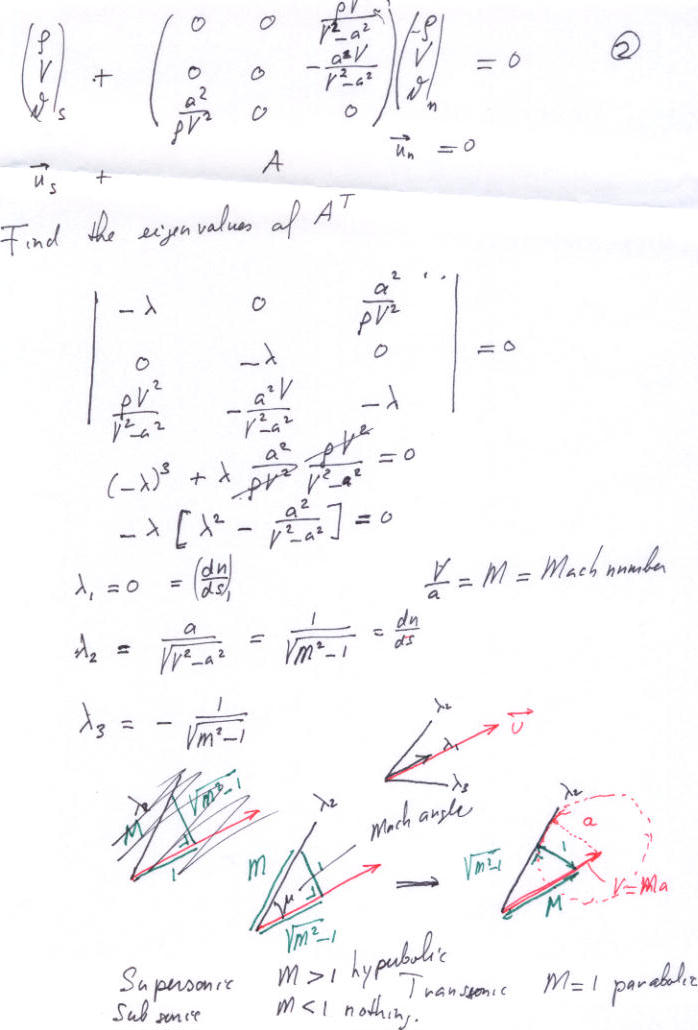 (ρ V ϑ)ₛ + ( 0 0 ρV²/(V²-a²) ; 0 0 -a²V/(V²-a²) ; a²/(ρV²) 0 0 ) (ρ V ϑ)ₙ = 0 ②
u⃗ₛ + A u⃗ₙ = 0
Find the eigenvalues of Aᵀ
| -λ 0 a²/(ρV²) ; 0 -λ 0 ; ρV²/(V²-a²) -a²V/(V²-a²) -λ | = 0
(-λ)³ + λ a²/(ρV²) ρV²/(V²-a²) = 0
-λ [λ² - a²/(V²-a²)] = 0
λ₁ = 0 = (dn/ds)₁ V/a = M = Mach number
λ₂ = a/√(V²-a²) = 1/√(M²-1) = dn/ds
λ₃ = - 1/√(M²-1)
λ₂ λ₁ λ₃ U⃗
λ₂ M √(M²-1) 1
λ₂ M μ 1 √(M²-1) Mach angle
⇒ λ₂ √(M²-1) 1 M a V=Ma
Supersonic M>1 hyperbolic Transsonic M=1 parabolic
Subsonic M<1 nothing.